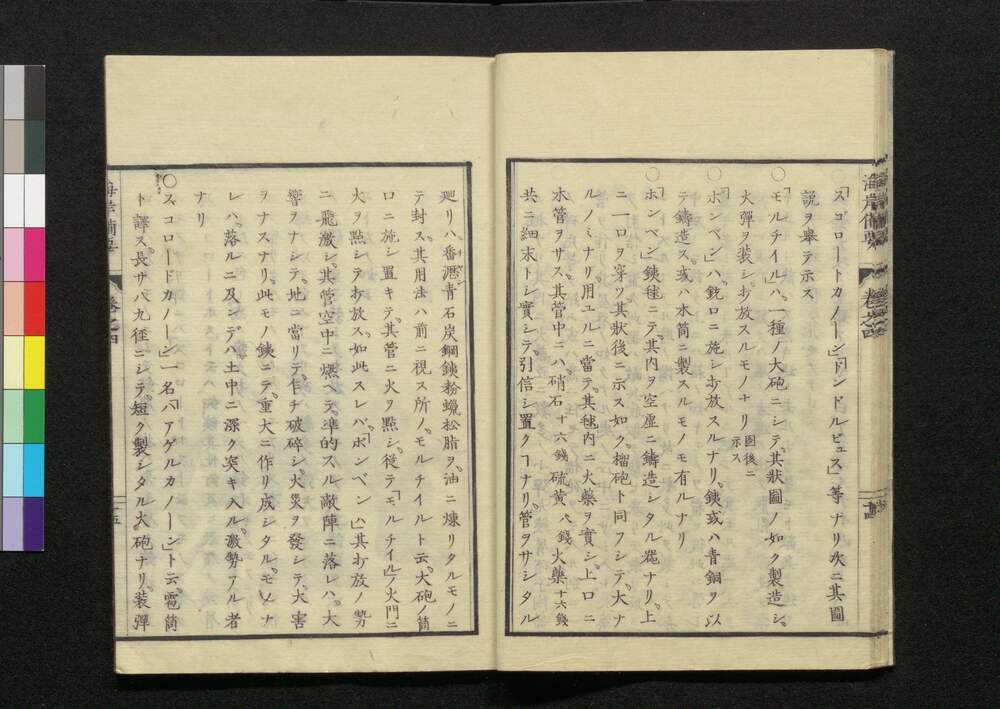 「スゴロートカノーン」「ドンドルビュス」等ナリ次ニ其圖
説ヲ擧テ示ス
○「モルチイル」ハ、一種ノ大砲ニシテ、其状圖ノ如ク製造シ、
火彈ヲ装シ打放スルモノナリ 圖後ニ示ス
○「ボンベン」ハ、銃口ニ施シ打放スルナリ、鐵或ハ青銅ヲ以
テ鑄造ス、或ハ木筒ニ製スルモノモ有ルナリ
○「ボンベン」鐵毬ニテ、其内ヲ空虚ニ鑄造シタル器ナリ、上
ニ一口ヲ穿ツ、其状後ニ示ス如ク、榴砲ト同フシテ、大ナ
ルノミナリ用ユルニ當テ、其毬内ニ火藥ヲ實シ、上口ニ
木管ヲサス、其管中ニハ、硝石 十六錢 硫黄 八錢 火藥 十六錢
共ニ細末トシ實シテ、引信シ置クヿナリ、管ヲサシタル
廻リハ番瀝青石炭鋼鐵粉蝋松脂ヲ、油ニ煉リタルモノニ
テ封ス、其用法ハ前ニ視ス所ノ、モルチイルト云、大砲ノ筒
口ニ施シ置キテ、其管ニ火ヲ點シ、從テ「モルチイル」ノ火門ニ
火ヲ點シテ打放ス、如此スレバ、「ボンベン」ハ其打放ノ勢
ニ飛激シ、其管空中ニ燃ヘテ、準的スル敵陣ニ落レハ、大
響ヲナシテ、地ニ當リテ、乍チ破碎シ、火災ヲ發シテ、大害
ヲナスナリ、此モノ鐵ニテ、重大ニ作リ成シタル、モノナ
レハ、落ルニ及ンデハ土中ニ深ク突キ入ル、激勢アル者
ナリ
○スゴロードカノーン」一名「ハアゲルカノーン」ト云、雹筒
ト譯ス、長サ八九徑ニシテ、短ク製シタル大砲ナリ、装彈
巻之四